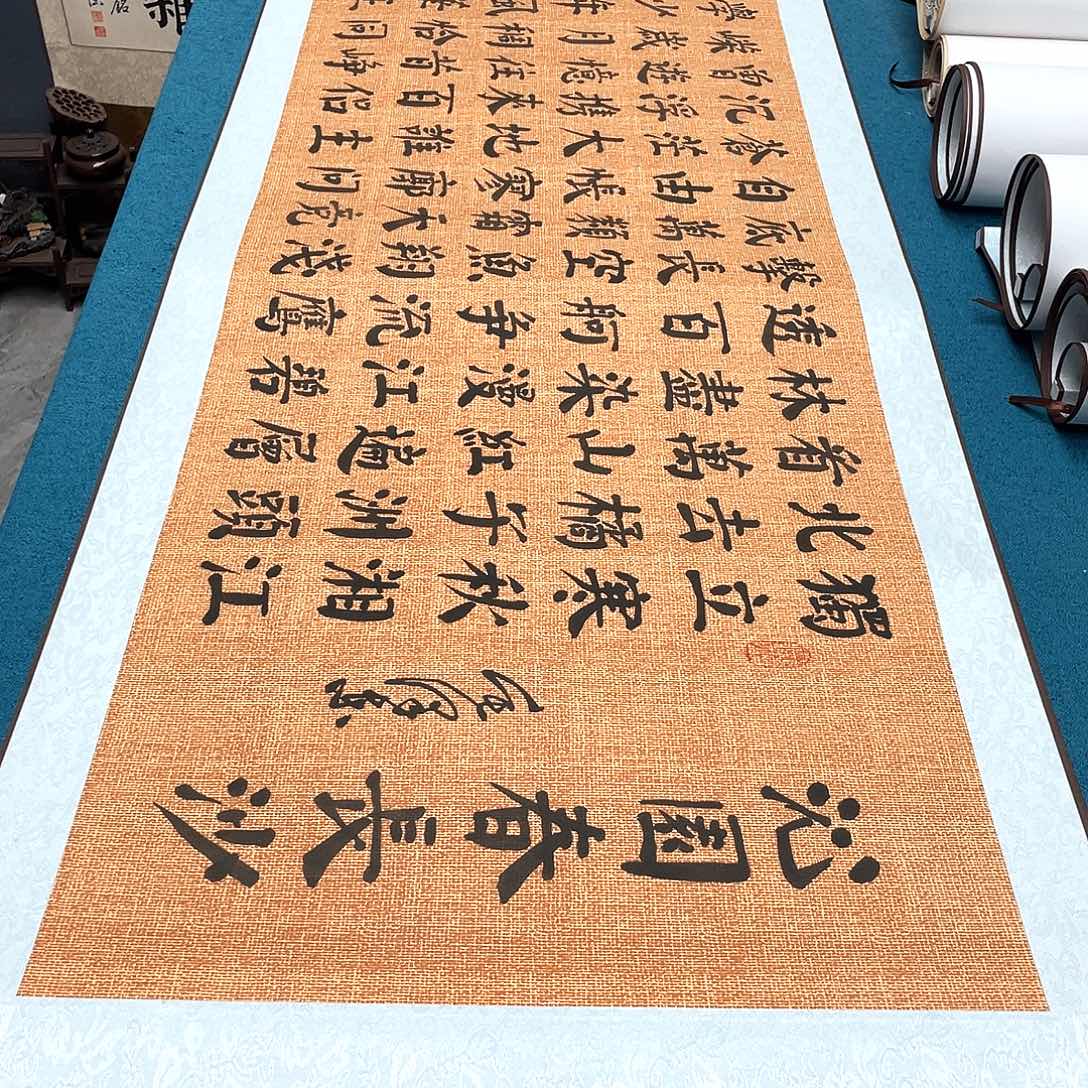 沁園春長沙
獨立寒秋湘江
北去橘子洲頭
看萬山紅遍層
林盡染漫江碧
透百舸爭流鷹
擊長空魚翔淺
底萬類霜天競
自由悵寥廓問
蒼茫大地誰主
沉浮携來百侶
曾遊憶往昔崢
嶸歲月稠恰同
學少年風